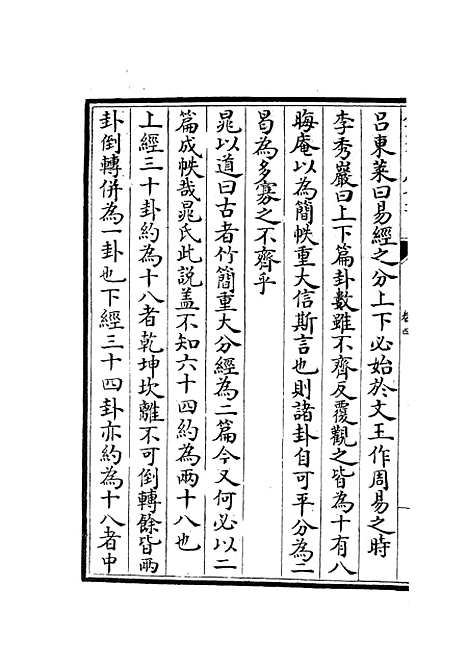 呂東萊曰易經之分上下必始於文王作周易之時
李秀巖曰上下篇卦數雖不齊反覆觀之皆為十有八
晦庵以為簡帙重大信斯言也則諸卦自可平分為二
曷為多寡之不齊乎
晁以道曰古者竹簡重大分經為二篇今又何必以二
篇成帙哉晁氏此說盖不知六十四約為兩十八也
上經三十卦約為十八者乾坤坎離不可倒轉餘皆兩
卦倒轉併為一卦也下經三十四卦亦約為十八者中